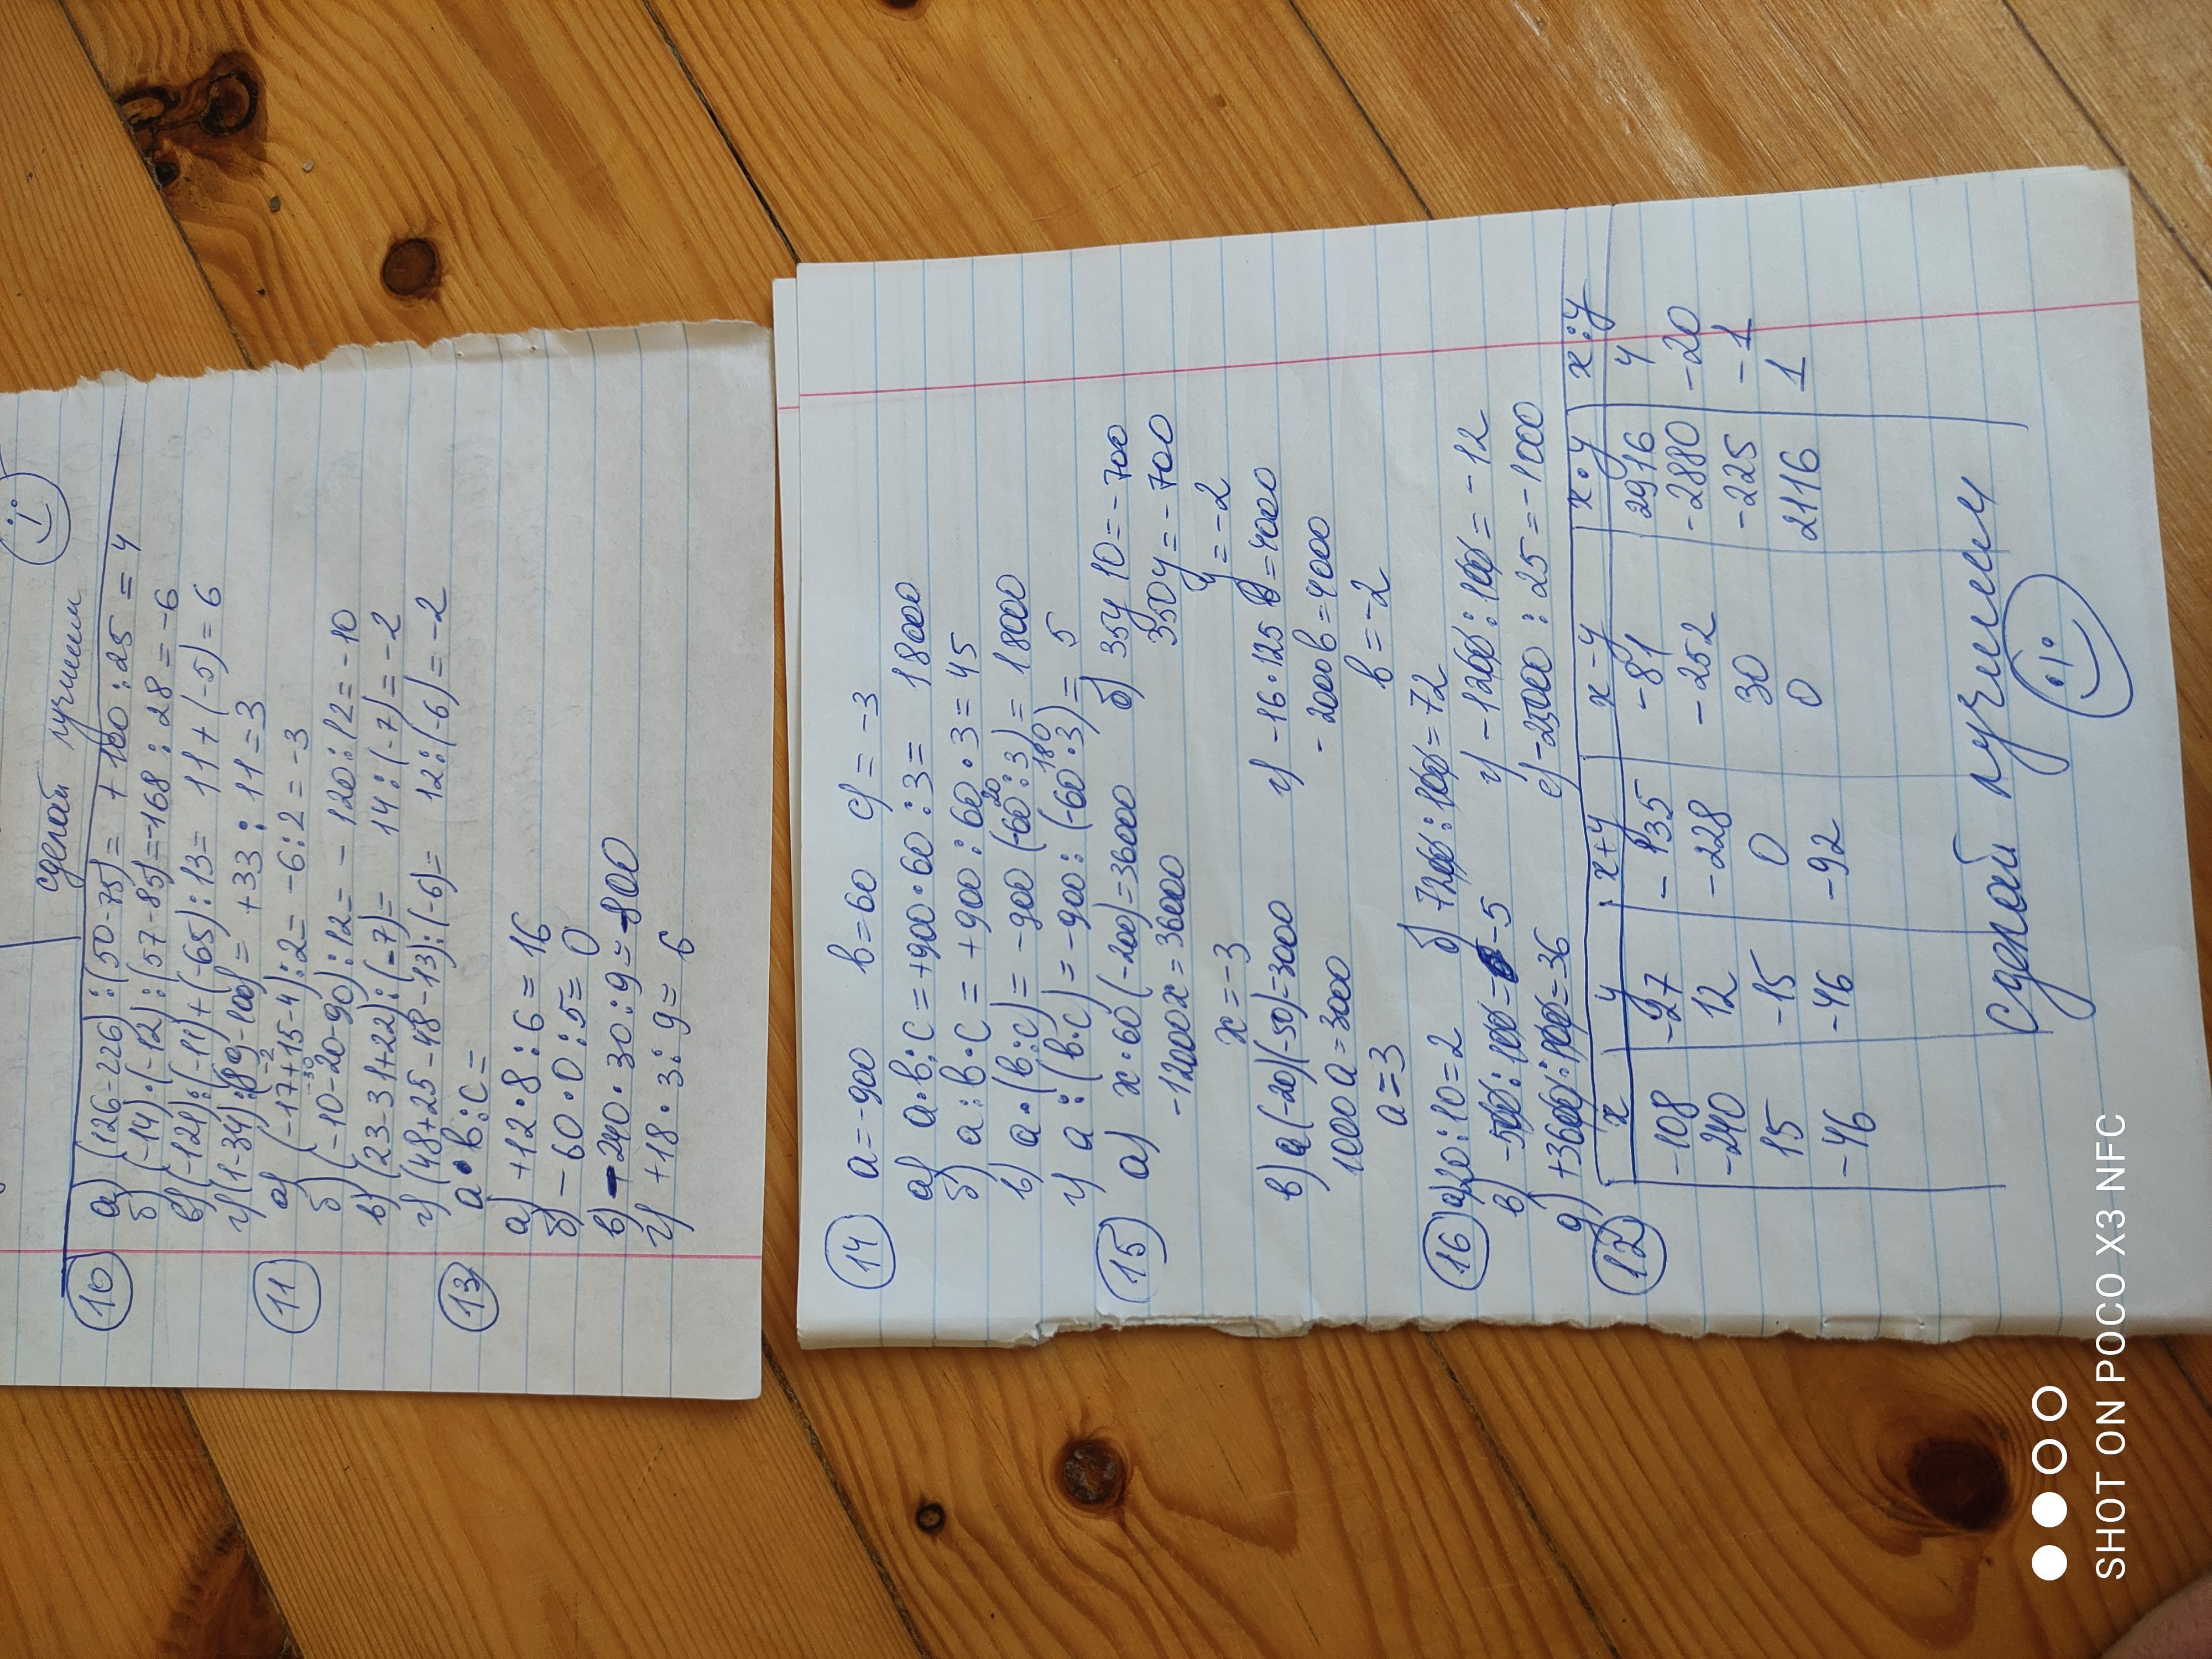 сделай лучшим
10 а) (126-226) : (50-75) = +100 : 25 = 4
б) (-14)·(-12) : (57-85) = -168 : 28 = -6
в) (-121) : (-11) + (-65) : 13 = 11 + (-5) = 6
г) (1-34) : (89-100) = +33 : 11 = 3
11 а) (-17+15-4) : 2 = -6 : 2 = -3
-2
б) (-10-20-90) : 12 = -120 : 12 = -10
-30
в) (23-31+22) : (-7) = 14 : (-7) = -2
г) (48+25-48-13) : (-6) = 12 : (-6) = -2
13 а·в:с=
а) +12·8:6=16
б) -60·0:5=0
в) -240·30:9=-800
г) +18·3:9=6
14 а=-900 в=60 с=-3
а) а·в:с=+900·60:3=18000
б) а:в·с=+900:60·3=45
в) а·(в:с)=-900(-60:3)=18000
20
г) а:(в·с)=-900:(-60·3)=5
180
15 а) х·60(-200)=36000 б) 35у 10=-700
-12000х=36000 350у=-700
х=-3 у=-2
в) а(-20)(-50)=3000 г) -16·125в=4000
1000а=3000 -2000в=4000
а=3 в=-2
16 а) 20:10=2 б) 7200:100=72
в) -500:100=-5 г) -1200:100=-12
д) +3600:100=36 е) -25000:25=-1000
12 х у х+у х-у х·у х:у
-108 -27 -135 -81 2916 4
-240 12 -228 -252 -2880 -20
15 -15 0 30 -225 -1
-46 -46 -92 0 2116 1
сделай лучшим
SHOT ON POCO X3 NFC